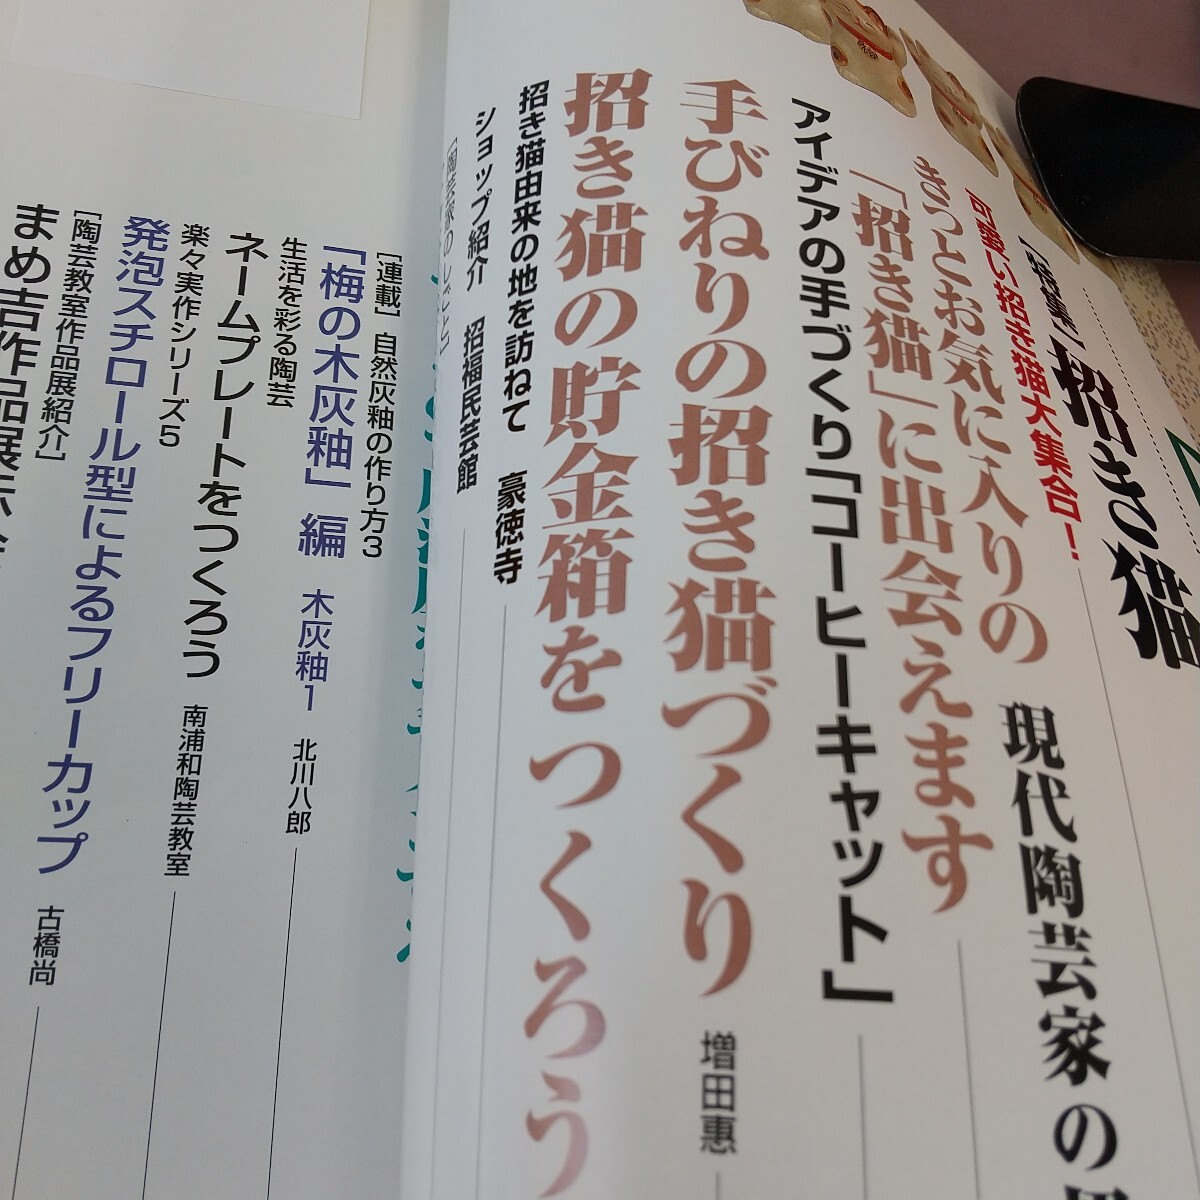 [特集]招き猫
現代陶芸家の
可愛い招き猫大集合！
きっとお気に入りの
「招き猫」に出会えます
アイデアの手づくり「コーヒーキャット」
手びねりの招き猫づくり 増田惠
招き猫の貯金箱をつくろう
招き猫由来の地を訪ねて 豪徳寺
ショップ紹介 招福民芸館
[連載] 自然灰釉の作り方3
「梅の木灰釉」編 木灰釉1 北川八郎
生活を彩る陶芸
ネームプレートをつくろう 南浦和陶芸教室
楽々実作シリーズ5
発泡スチロール型によるフリーカップ 古橋尚
[陶芸教室作品展紹介]
まめ吉作品展